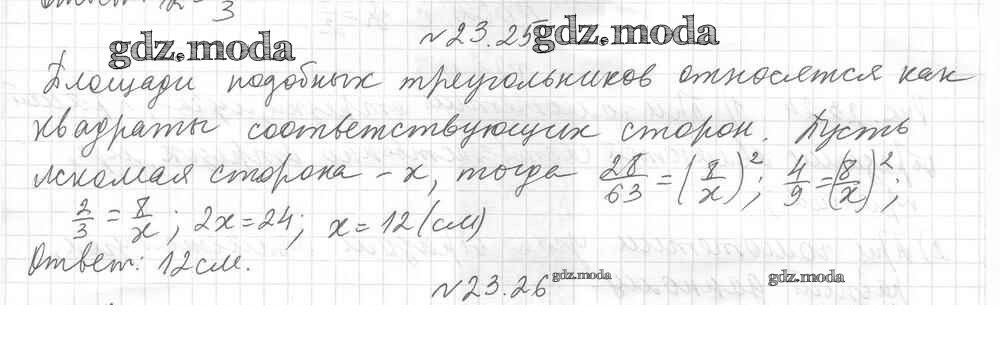 №23.25
gdz.moda gdz.moda
Площади подобных треугольников относятся как
квадраты соответствующих сторон. Пусть
искомая сторона - x, тогда 28/63 = (8/x)²; 4/9 = (8/x)²;
2/3 = 8/x; 2x = 24; x = 12 (см)
Ответ: 12 см.
№23.26
gdz.moda gdz.moda